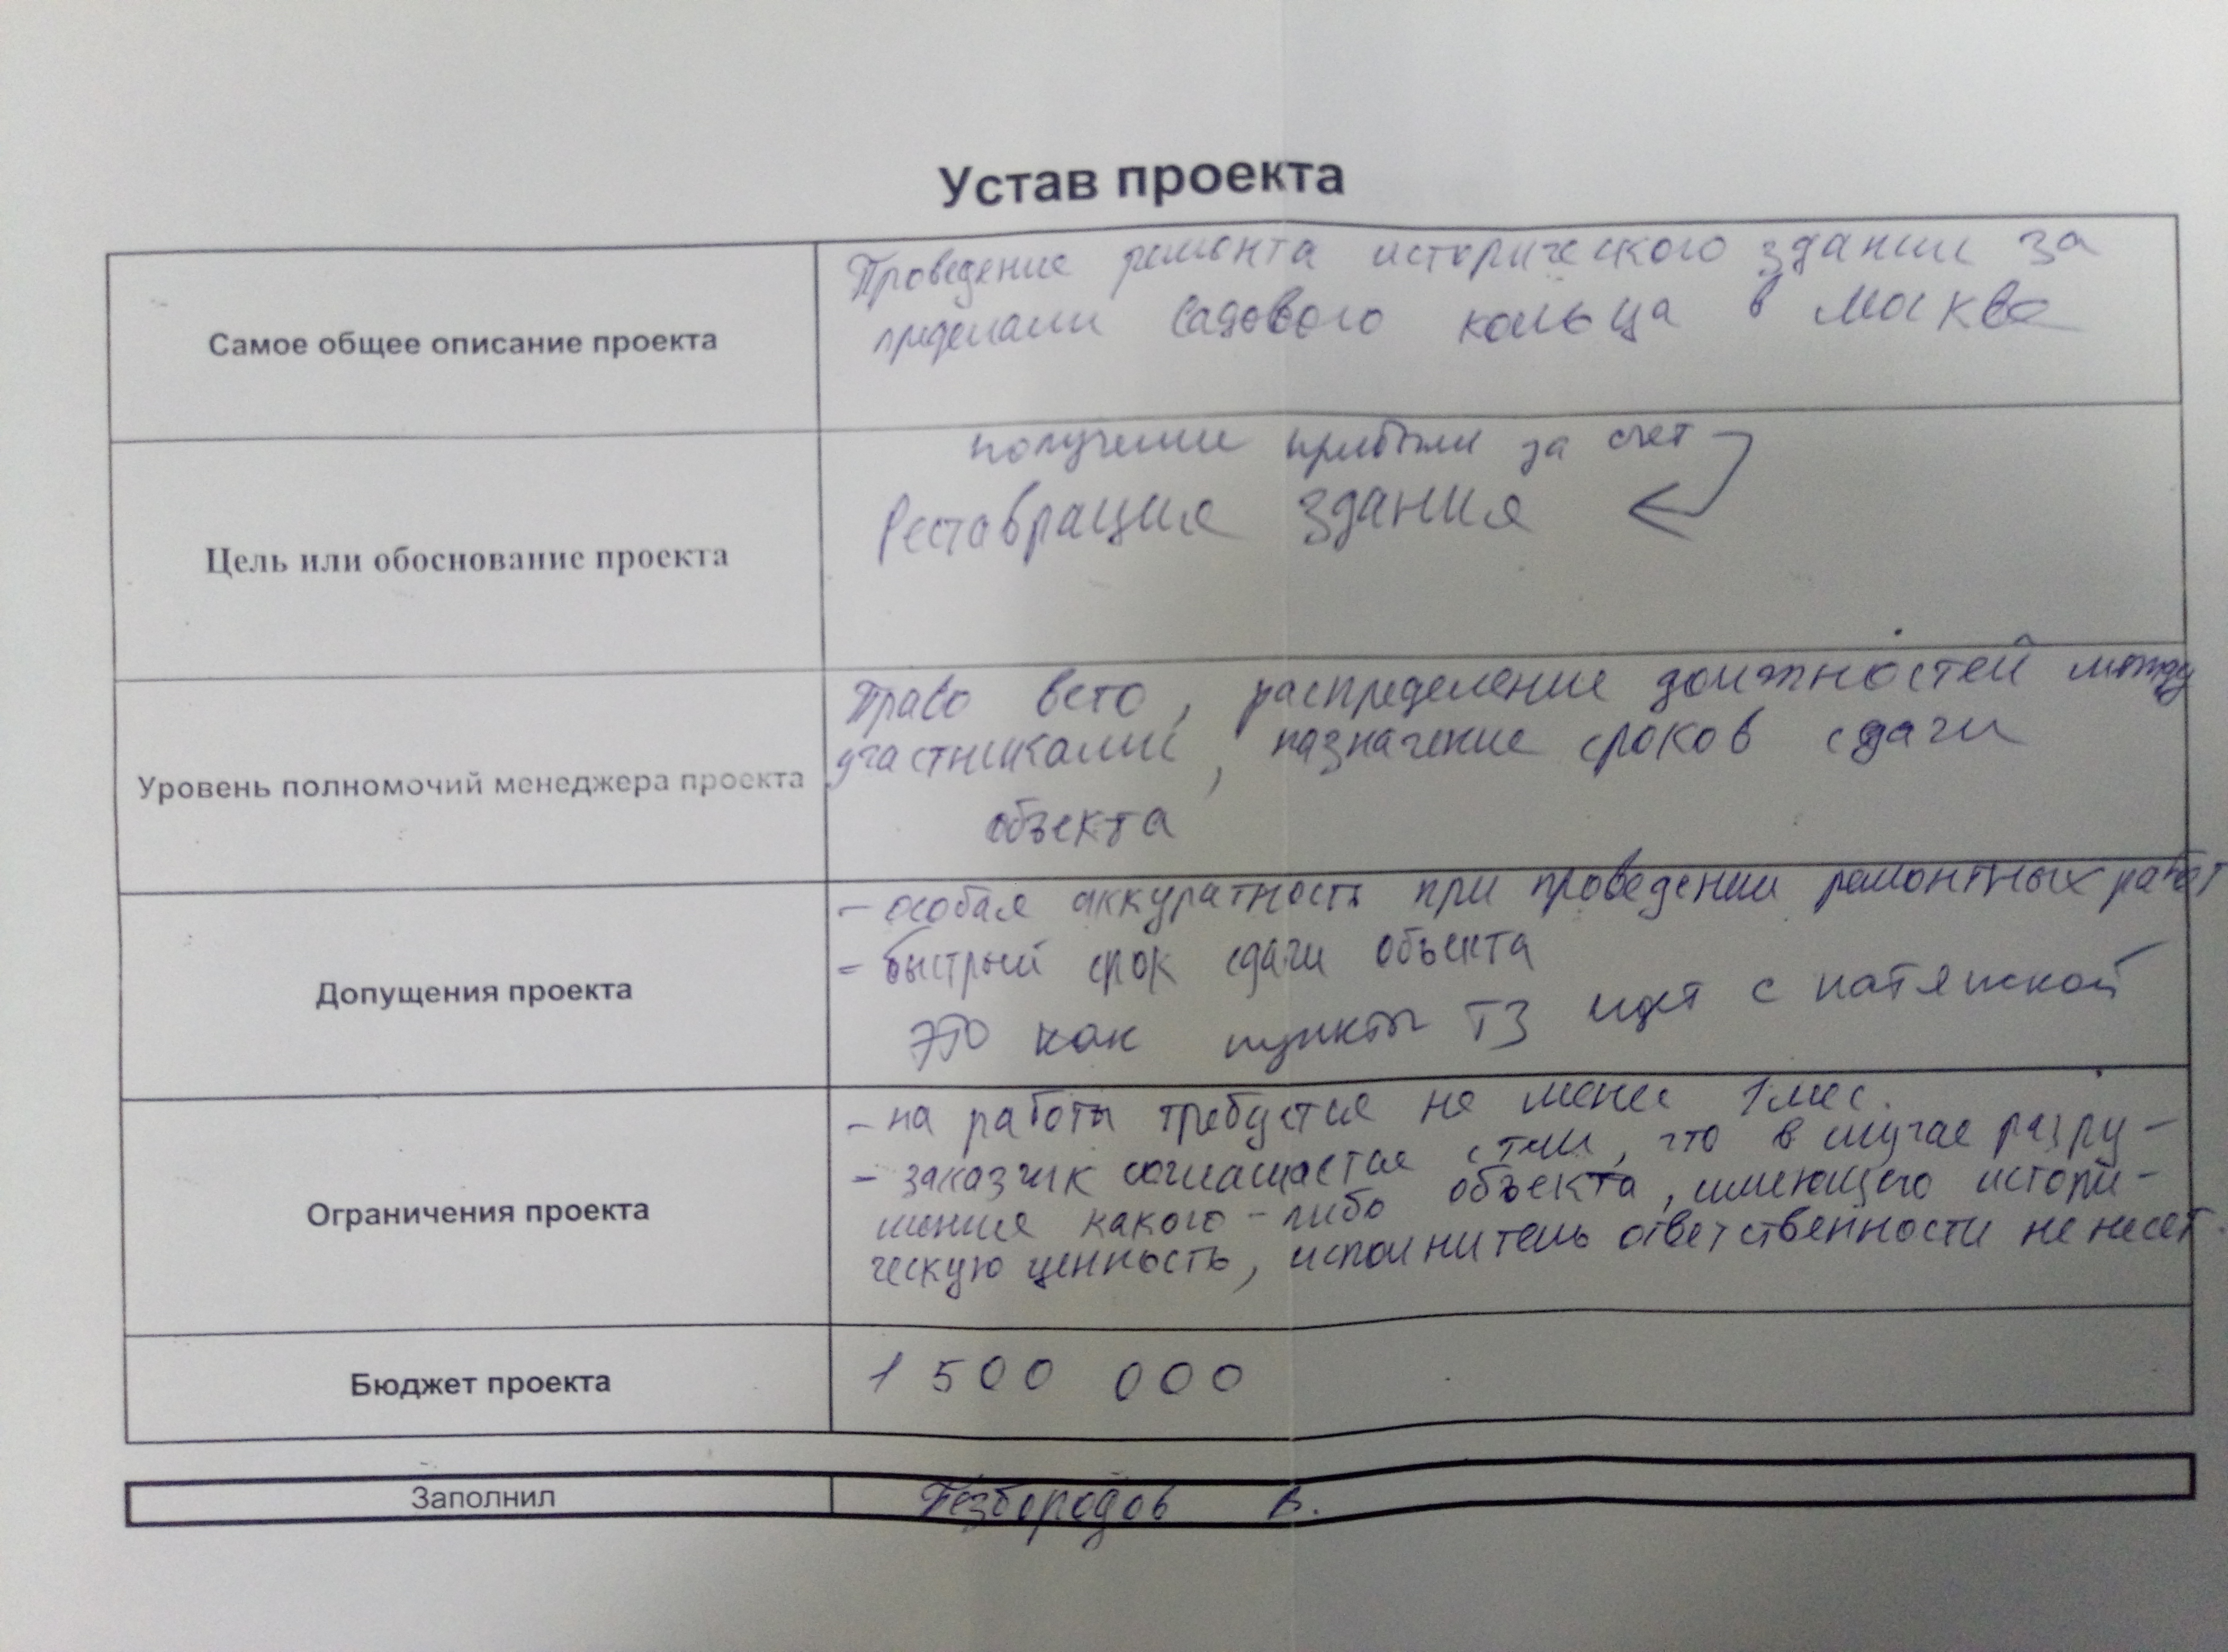 Устав проекта
Самое общее описание проекта
Проведение ремонта исторического здания за
пределами Садового кольца в Москве
Цель или обоснование проекта
получение прибыли за счет
Реставрация здания
Уровень полномочий менеджера проекта
Право вето, распределение должностей между
участниками, назначение сроков сдачи
объекта
Допущения проекта
- особая аккуратность при проведении ремонтных работ
- быстрый срок сдачи объекта
это как пункты ТЗ идет с натяжкой
Ограничения проекта
- на работы требуется не менее 1 мес.
- заказчик соглашается с тем, что в случае разру-
шения какого-либо объекта, имеющего истори-
ческую ценность, исполнитель ответственности не несет.
Бюджет проекта
1 500 000
Заполнил
Безбородов В.